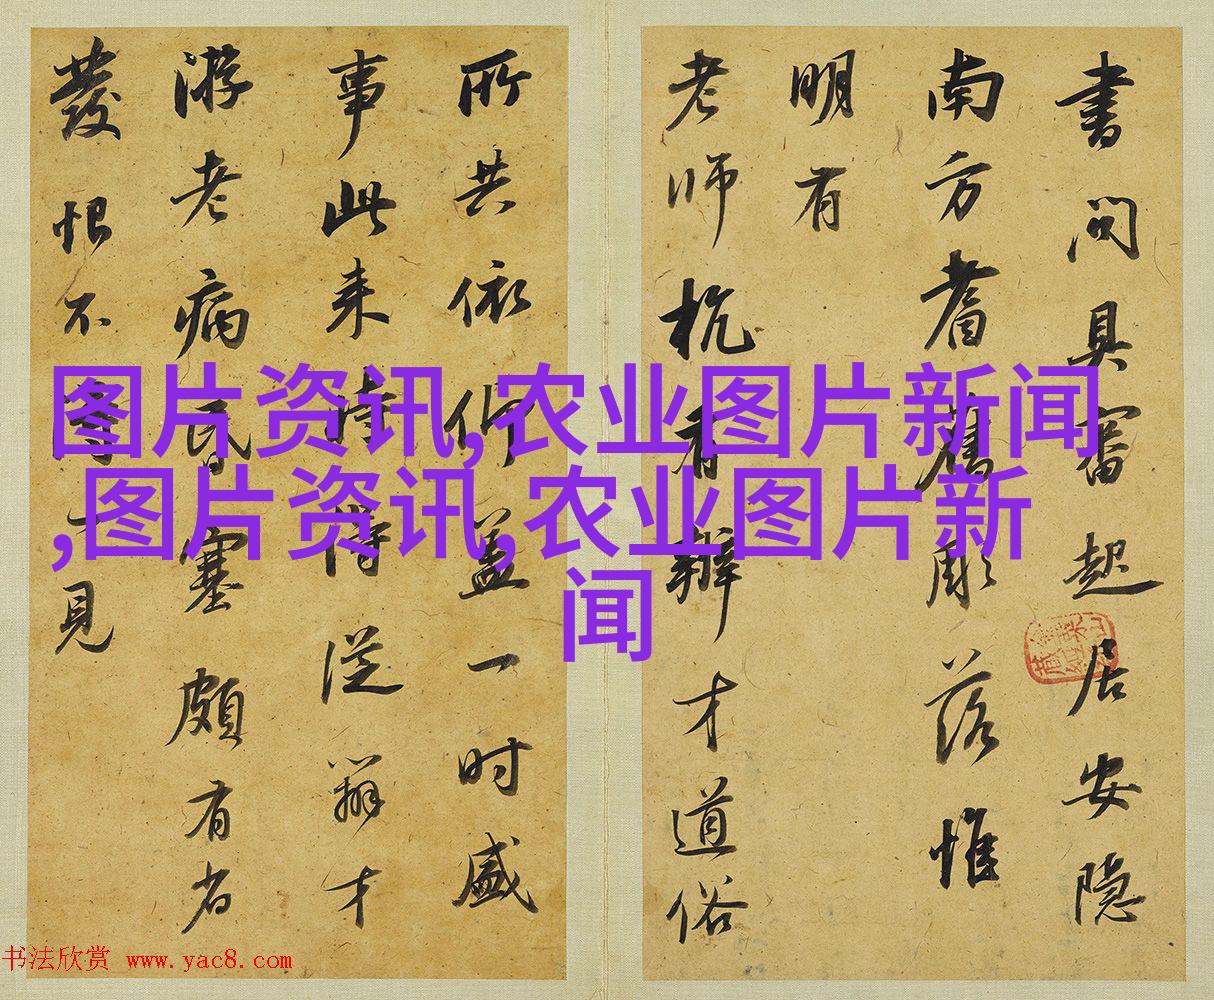 图片资讯,农业图片新闻
,图片资讯,农业图片新
闻
書問具審起居安隱
南方耆舊彫落惟
明有
老師杭有辯才道俗
所共依仰蓋一時盛
事此来時得從辯才
游老病昏塞頗有省
發恨不見
书法欣赏 www.yac8.com